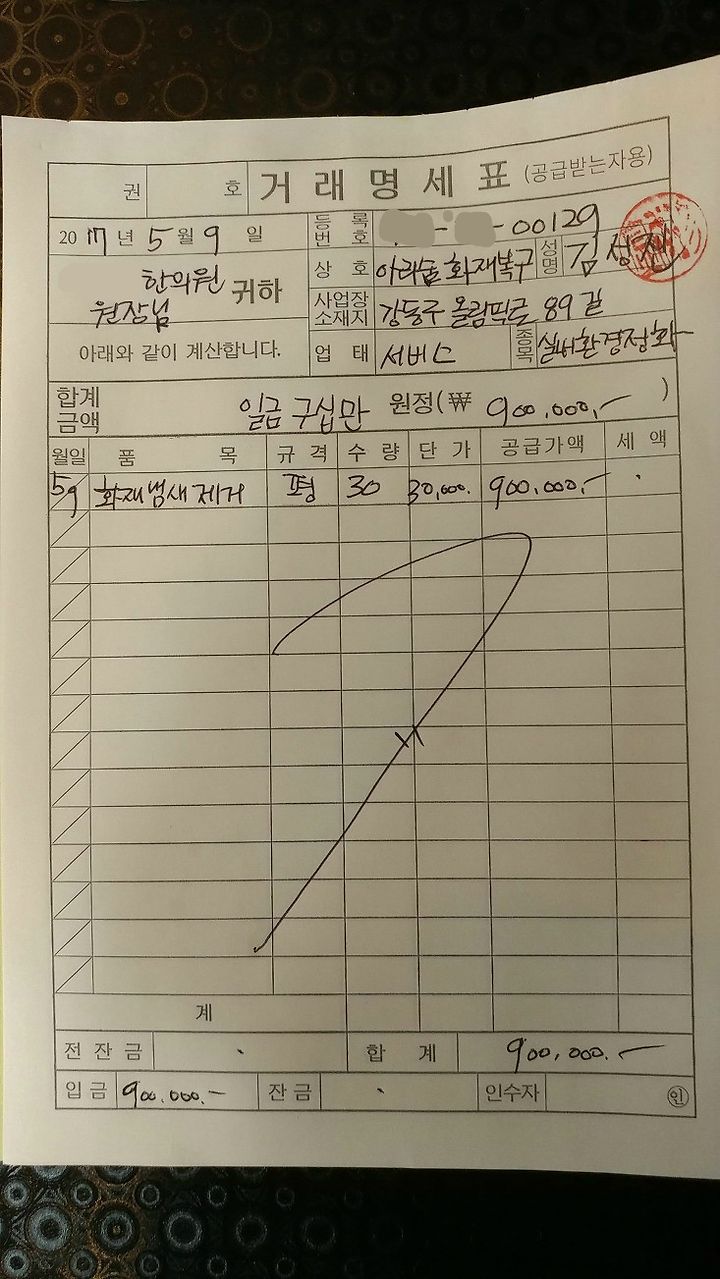 권 호 거래명세표 (공급받는자용)
2017년 5월 9일
한의원
원장님 귀하
아래와 같이 계산합니다.
등록번호 - - 00129
상호 아라숲화재복구 성명 김성진
사업장소재지 강동구 올림픽로 89길
업태 서비스 종목 실내환경정화
합계금액 일금 구십만 원정(₩ 900,000,- )
월일 품목 규격 수량 단가 공급가액 세액
5/9 화재냄새제거 평 30 30,000. 900,000,-
계
전잔금 합계 900,000.-
입금 900,000.- 잔금 인수자 ㊞